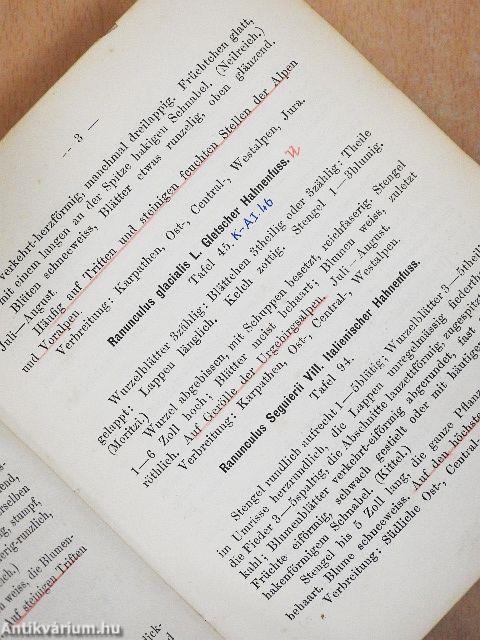 — 3 —
verkehrt-herzförmig, manchmal dreilappig. Früchtchen glatt,
mit einem langen an der Spitze hakigen Schnabel. (Neilreich.)
Blüten schneeweiss, Blätter etwas runzelig, oben glänzend.
Juli—August.
Häufig auf Triften und steinigen feuchten Stellen der Alpen
und Voralpen.
Verbreitung: Karpathen, Ost-, Central-, Westalpen, Jura.
Ranunculus glacialis L. Gletscher Hahnenfuss.
Tafel 45. K-AI.46
Wurzelblätter 3zählig: Blättchen 3theilig oder 3zählig: Theile
gelappt: Lappen länglich. Kelch zottig. Stengel 1—3blumig.
(Moritzi.)
Wurzel abgebissen, mit Schuppen besetzt, reichfaserig. Stengel
1—6 Zoll hoch; Blätter meist behaart; Blumen weiss, zuletzt
röthlich. Auf Gerölle der Urgebirgsalpen. Juli—August.
Verbreitung: Karpathen, Ost-, Central-, Westalpen.
Ranunculus Seguierii Vill. Italienischer Hahnenfuss.
Tafel 94.
Stengel rundlich aufrecht 1—5blütig; Wurzelblätter 3—5theilig
im Umrisse herzrundlich, die Lappen unregelmässig fiedertheilig
die Fieder 3—5spaltig, die Abschnitte lanzettförmig, zugespitzt,
kahl; Blumenblätter verkehrt-eiförmig abgerundet, fast
Früchte eiförmig, schwach gestielt oder mit häutigem
hakenförmigem Schnabel. (Kittel.)
Stengel bis 5 Zoll lang, die ganze Pflanze
behaart, Blume schneeweiss. Auf den höchsten
Verbreitung: Südliche Ost-, Central-
end,
stumpf,
erig-runzlich,
ch.)
n weiss, die Blumen-
Auf steinigen Triften
Antikvárium.hu